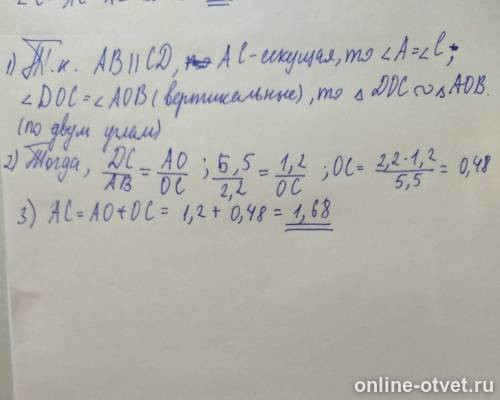 1) Т.к. AB || CD, AC - секущая, то ∠A = ∠C;
∠DOC = ∠AOB (вертикальные), то △ DOC ∾ △ AOB.
(по двум углам)
2) Тогда, DC/AB = AO/OC ; 5,5/2,2 = 1,2/OC ; OC = 2,2·1,2/5,5 = 0,48
3) AC = AO + OC = 1,2 + 0,48 = 1,68
online-otvet.ru